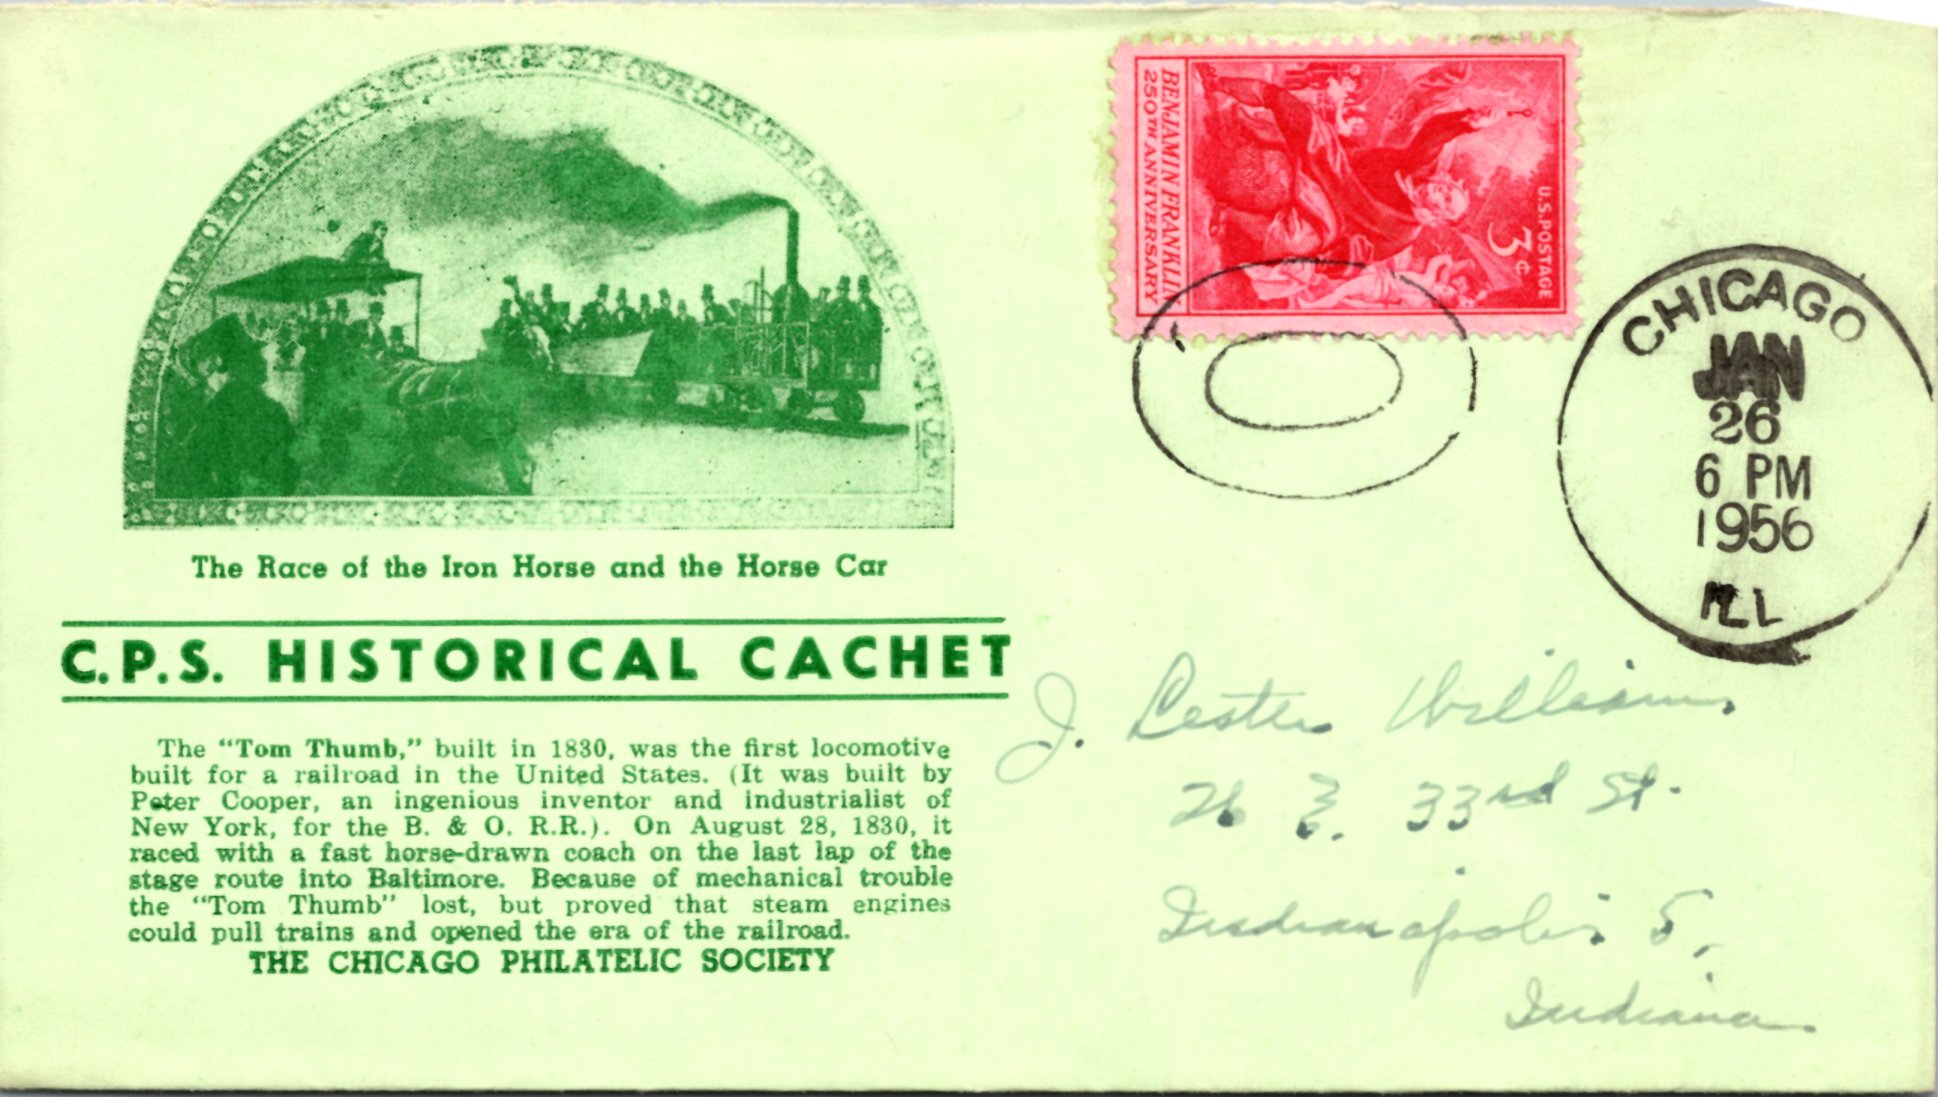 The Race of the Iron Horse and the Horse Car
C.P.S. HISTORICAL CACHET
The "Tom Thumb," built in 1830, was the first locomotive
built for a railroad in the United States. (It was built by
Peter Cooper, an ingenious inventor and industrialist of
New York, for the B. & O. R.R.). On August 28, 1830, it
raced with a fast horse-drawn coach on the last lap of the
stage route into Baltimore. Because of mechanical trouble
the "Tom Thumb" lost, but proved that steam engines
could pull trains and opened the era of the railroad.
THE CHICAGO PHILATELIC SOCIETY
BENJAMIN FRANKLIN
250TH ANNIVERSARY
U.S. POSTAGE
3¢
CHICAGO
JAN
26
6 PM
1956
ILL
J. Lester Williams
26 E. 33rd St.
Indianapolis 5,
Indiana